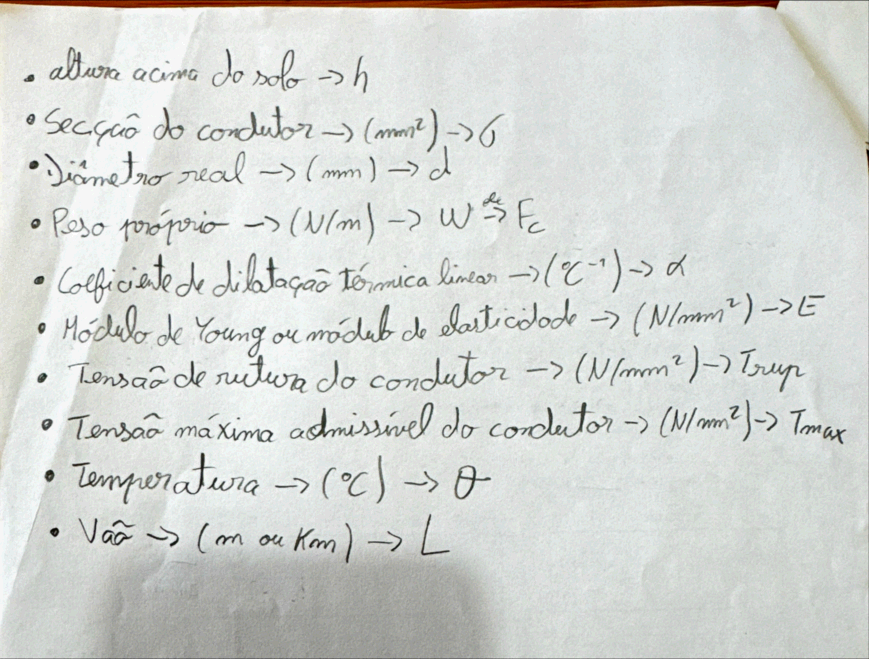 • altura acima do solo -> h
• Secção do condutor -> (mm²) -> σ
• Diâmetro real -> (mm) -> d
• Peso próprio -> (N/m) -> W de -> Fc
• Coeficiente de dilatação térmica linear -> (°C⁻¹) -> α
• Módulo de Young ou módulo de elasticidade -> (N/mm²) -> E
• Tensão de rutura do condutor -> (N/mm²) -> Trup
• Tensão máxima admissível do condutor -> (N/mm²) -> Tmax
• Temperatura -> (°C) -> θ
• Vão -> (m ou Km) -> L